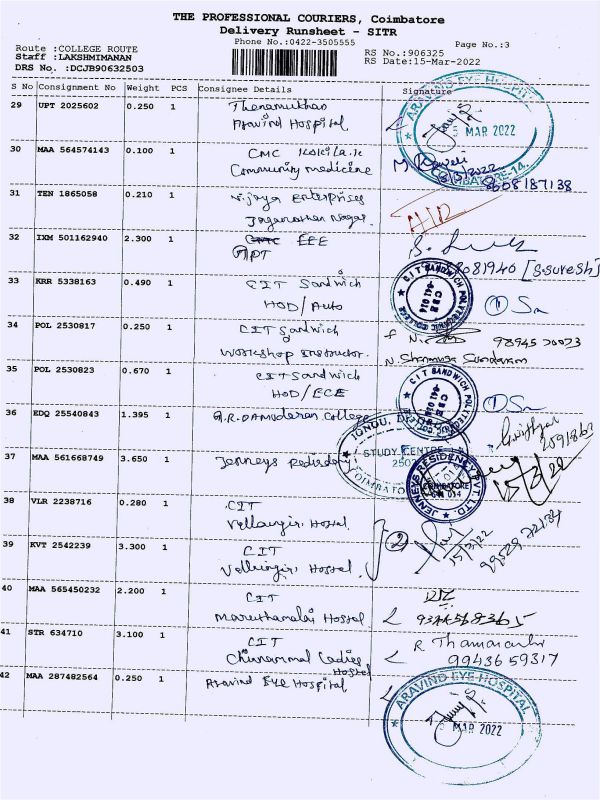 THE PROFESSIONAL COURIERS, Coimbatore
Delivery Runsheet - SITR
Phone No.:0422-3505555
Page No.:3
Route :COLLEGE ROUTE
RS No.:906325
Staff :LAKSHMIMANAN
RS Date:15-Mar-2022
DRS No. :DCJB90632503
S No Consignment No Weight PCS Consignee Details Signature
29 UPT 2025602 0.250 1
Aravind Hospital
ARAVIND EYE HOSPITAL
5 MAR 2022
COIMBATORE-14
30 MAA 564574143 0.100 1 CMC Kokila.k
Community medicine
8608187138
31 TEN 1865058 0.210 1 Vijaya Enterprises
Jaganathan Nagar
32 IXM 501162940 2.300 1 EEE
PT
[S.Suresh]
33 KRR 5338163 0.490 1 CIT Sandwich
HOD/Auto
CIT SANDWICH POLYTECHNIC COLLEGE
CBE
641 014
34 POL 2530817 0.250 1 CIT Sandwich
Workshop Instructor.
N. Shanmuga Sundaram
35 POL 2530823 0.670 1 CIT Sandwich
HOD/ECE
CIT SANDWICH POLYTECHNIC COLLEGE
CBE
641 014
36 EDQ 25540843 1.395 1 G.R.Damodaran College
IGNOU,
STUDY CENTRE
COIMBATORE
37 MAA 561668749 3.650 1 Jenneys
JENNEYS RESIDENCY PVT. LTD
COIMBATORE
641 014
15/3/22
38 VLR 2238716 0.280 1 CIT
Vellaingiri Hostel.
2
15/3/22
39 KVT 2542239 3.300 1 CIT
Vellaingiri Hostel.
40 MAA 565450232 2.200 1 CIT
Maruthamalai Hostel
9344568365
41 STR 634710 3.100 1 CIT
Chinnammal Ladies
Hostel
9943659317
42 MAA 287482564 0.250 1 Aravind Eye Hospital
ARAVIND EYE HOSPITAL
5 MAR 2022